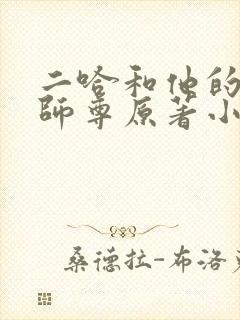 二哈和他的
師尊原著小
桑德拉-布洛